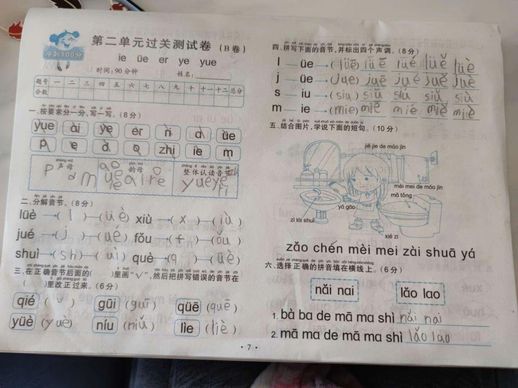 第二单元过关测试卷 (B卷)
ie üe er ye yue
时间:90分钟 姓名:
题号 一 二 三 四 五 六 七 八 九 十 十一 十二 总分
分数
一.按要求分一分,写一写。(8分)
yue ɑi ye er n ɑ üe
p d o zhi ie m
声母 韵母 整体认读音节
二.分解音节。(8分)
lüè→(l)(üè) xiù→(x)(iù)
jué→(j)(üé) fǒu→(f)(ǒu)
shuì→(sh)(uì) què→(q)(üè)
三.在正确音节后面的( )里画"√",然后把拼写错误的音节在( )里改正过来。(6分)
qié (√) gūi (guī) qüē (quē)
yüè (yuè) níu (niú) lìe (liè)
四.拼写下面的音节,并标出四个声调。(8分)
l üe→(lüe) lüē lüé lüě lüè
j üe→(jue) juē jué juě juè
s iu→(siu) siū siú siǔ siù
m ie→(mie) miē mié miě miè
五.结合图片,学说下面的短句。(10分)
jiě jie de máo jīn
mèi mei de máo jīn
mǎ tǒng
yá gāo
zǐ lói shuǐ
xié zi
zǎo chén mèi mei zài shuā yá
六.选择正确的拼音填在横线上。(6分)
nǎi nai lǎo lao
1. bà ba de mā ma shì nǎi nai
2. mā ma de mā ma shì lǎo lao
· 7 ·